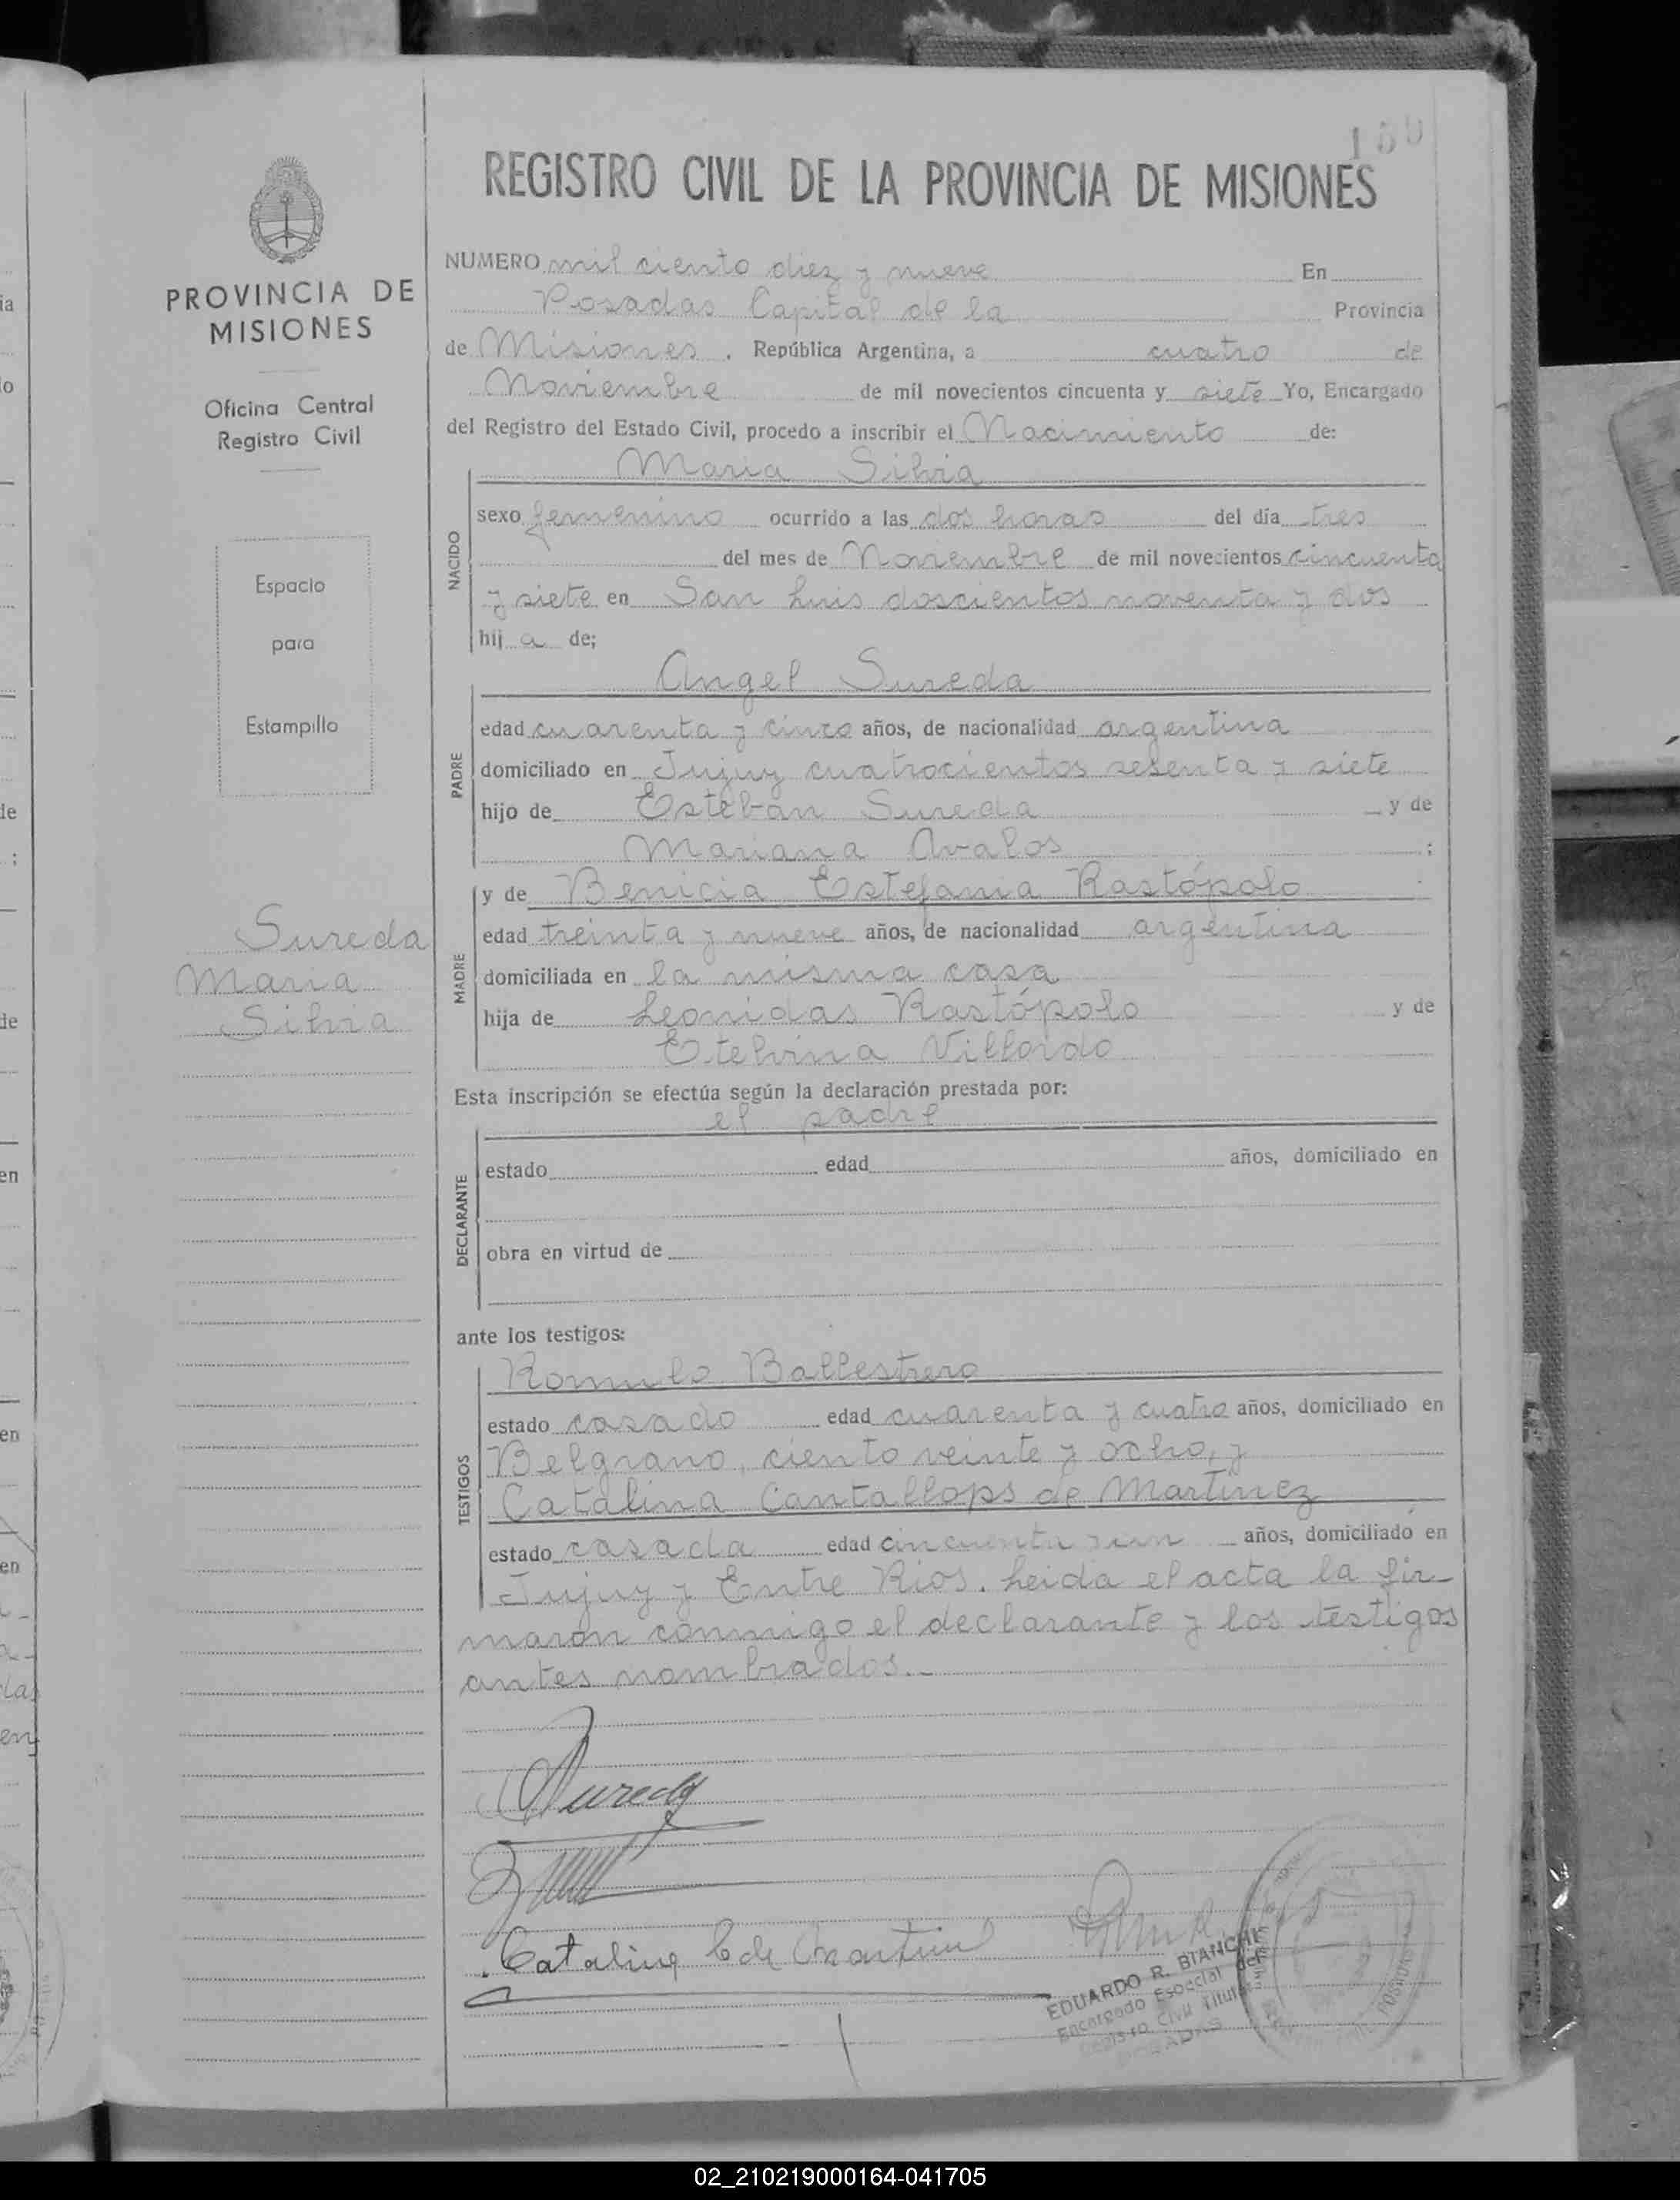 150
REGISTRO CIVIL DE LA PROVINCIA DE MISIONES
PROVINCIA DE
MISIONES
Oficina Central
Registro Civil
Espacio
para
Estampillo
Sureda
Maria
Silvia
NUMERO mil ciento diez y nueve En
Posadas Capital de la Provincia
de Misiones. República Argentina, a cuatro de
Noviembre de mil novecientos cincuenta y siete Yo, Encargado
del Registro del Estado Civil, procedo a inscribir el Nacimiento de:
Maria Silvia
NACIDO
sexo femenino ocurrido a las dos horas del día tres
del mes de Noviembre de mil novecientos cincuenta
y siete en San Luis doscientos noventa y dos
hij a de;
Angel Sureda
PADRE
edad cuarenta y cinco años, de nacionalidad argentina
domiciliado en Jujuy cuatrocientos sesenta y siete
hijo de Esteban Sureda y de
Mariana Avalos ;
MADRE
y de Benicia Estefania Rastópolo
edad treinta y nueve años, de nacionalidad argentina
domiciliada en la misma casa
hija de Leonidas Rastópolo y de
Etelvina Villordo
Esta inscripción se efectúa según la declaración prestada por:
el padre
DECLARANTE
estado edad años, domiciliado en
obra en virtud de
ante los testigos:
Romulo Ballestrero
TESTIGOS
estado casado edad cuarenta y cuatro años, domiciliado en
Belgrano, ciento veinte y ocho, y
Catalina Cantallops de Martinez
estado casada edad cincuenta y un años, domiciliado en
Jujuy y Entre Rios. Leida el acta la fir-
maron conmigo el declarante y los testigos
antes nombrados.-
Sureda
Catalina C de Martinez
EDUARDO R. BIANCHI
Encargado Especial del
Registro Civil Titular
POSADAS
02_210219000164-041705